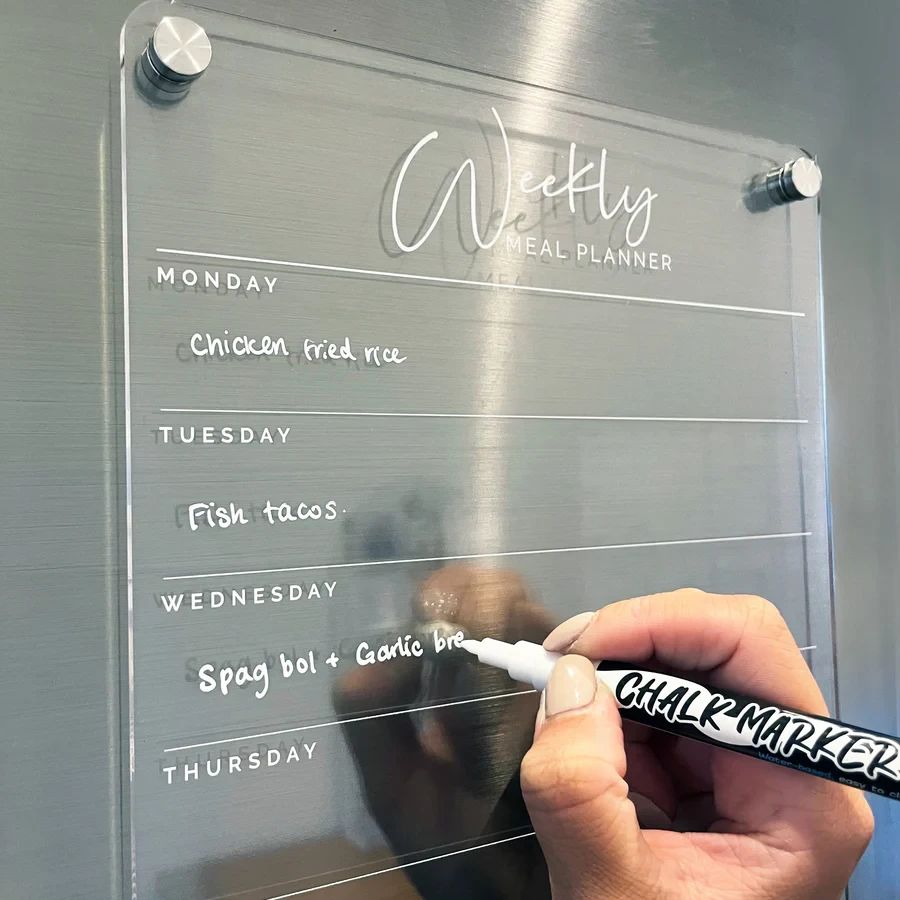 Weekly
MEAL PLANNER
MONDAY
Chicken fried rice
TUESDAY
Fish tacos.
WEDNESDAY
Spag bol + Garlic bre
THURSDAY
CHALK MARKER
Water-based, easy to